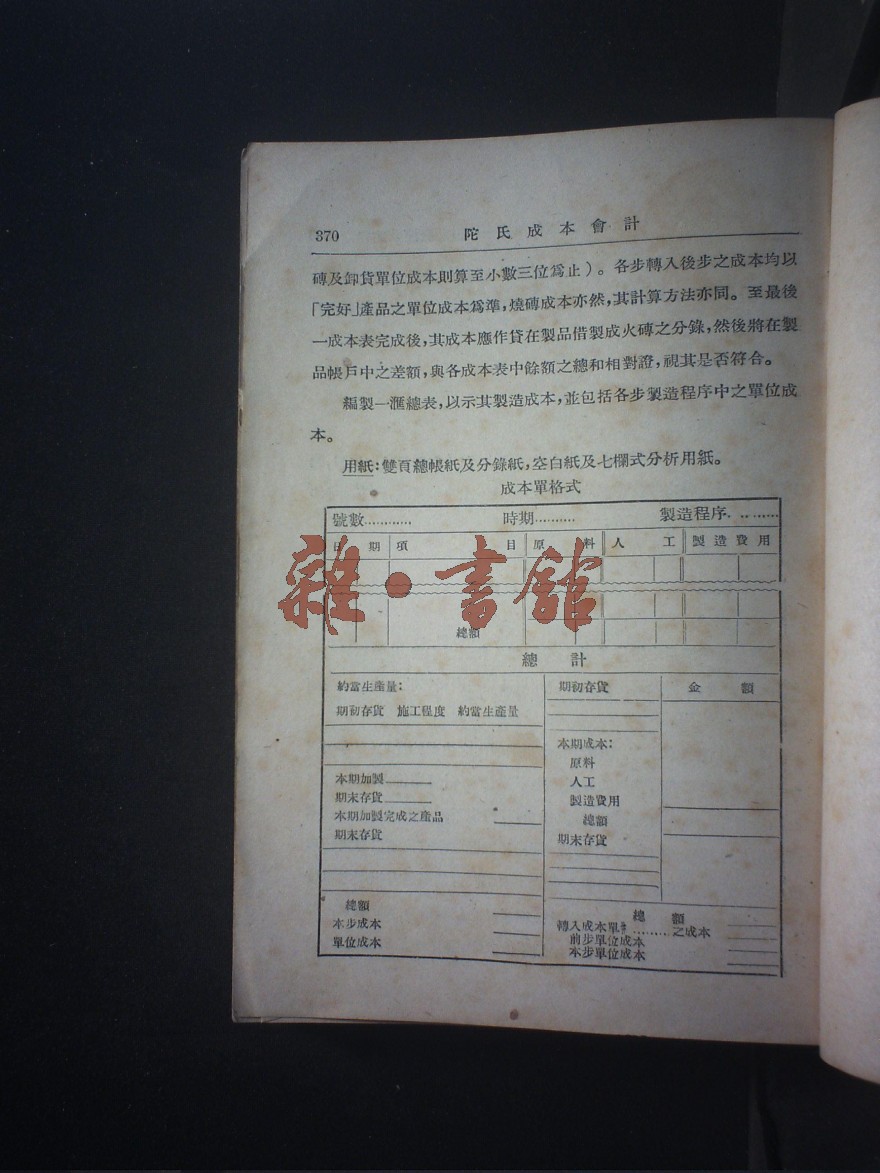 370
陀氏成本會計
磚及卸貨單位成本則算至小數三位爲止）。各步轉入後步之成本均以
「完好」產品之單位成本爲準，燒磚成本亦然，其計算方法亦同。至最後
一成本表完成後，其成本應作貸在製品借製成火磚之分錄，然後將在製
品帳戶中之差額，與各成本表中餘額之總和相對證，視其是否符合。
編製一滙總表，以示其製造成本，並包括各步製造程序中之單位成
本。
用紙：雙頁總帳紙及分錄紙，空白紙及七欄式分析用紙。
成本單格式
號數………… 時期……… 製造程序………
日期 項目 原料 人工 製造費用
雜·書館
總額
總計
約當生產量： 期初存貨 金額
期初存貨 施工程度 約當生產量
本期成本：
原料
本期加製 人工
期末存貨 製造費用
本期加製完成之產品 總額
期末存貨 期末存貨
總額 總額
本步成本 轉入成本單#………之成本
單位成本 前步單位成本
本步單位成本